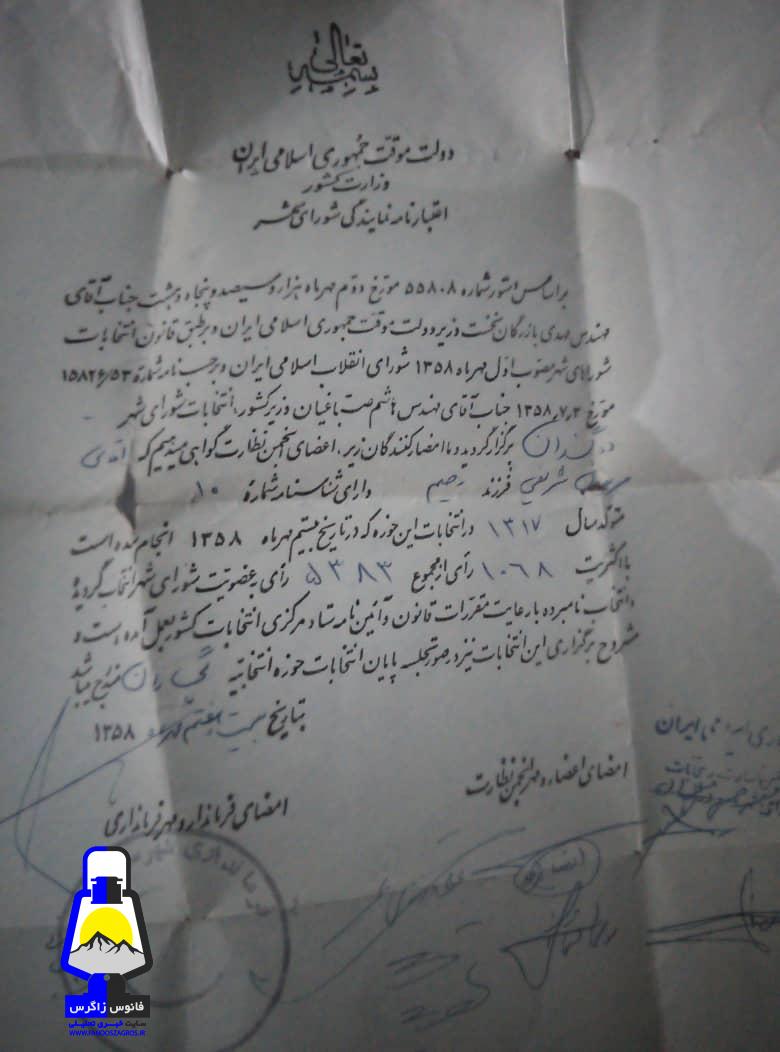 بسمه تعالی
دولت موقت جمهوری اسلامی ایران
وزارت کشور
اعتبارنامه نمایندگی شورای شهر
براساس دستور شماره ۵۵۸۰۸ مورخ دوم مهرماه هزار و سیصد و پنجاه و هشت جناب آقای
مهندس مهدی بازرگان نخست وزیر دولت موقت جمهوری اسلامی ایران و برطبق قانون انتخابات
شوراهای شهر مصوب اول مهرماه ۱۳۵۸ شورای انقلاب اسلامی ایران و برحسب نامه شماره ۱۵۸۲۶/۵۳
مورخ ۱۳۵۸,۷,۲ جناب آقای مهندس هاشم صباغیان وزیر کشور، انتخابات شورای شهر
برگزار گردید و ما امضاء کنندگان زیر، اعضای انجمن نظارت گواهی میدهیم که آقای
شریفی فرزند رحیم دارای شناسنامه شمارهٔ ۱۰
متولد سال ۱۳۱۷ در انتخابات این حوزه که در تاریخ بیستم مهرماه ۱۳۵۸ انجام شده است
با اکثریت ۱۰۶۸ رأی از مجموع ۵۳۸۳ رأی به عضویت شورای شهر انتخاب گردیده
و انتخاب نامبرده با رعایت مقررات قانون و آئین نامه ستاد مرکزی انتخابات کشور بعمل آمده است و
مشروح برگزاری این انتخابات نیز در صورتجلسه پایان انتخابات حوزه انتخابیه گچساران مندرج میباشد
بتاریخ بیست هفتم ۱۳۵۸
امضای اعضاء و مهر انجمن نظارت
امضای فرماندار و مهر فرمانداری
ایران
فانوس زاگرس
سایت خبری تحلیلی
WWW.FANOOSZAGROS.IR